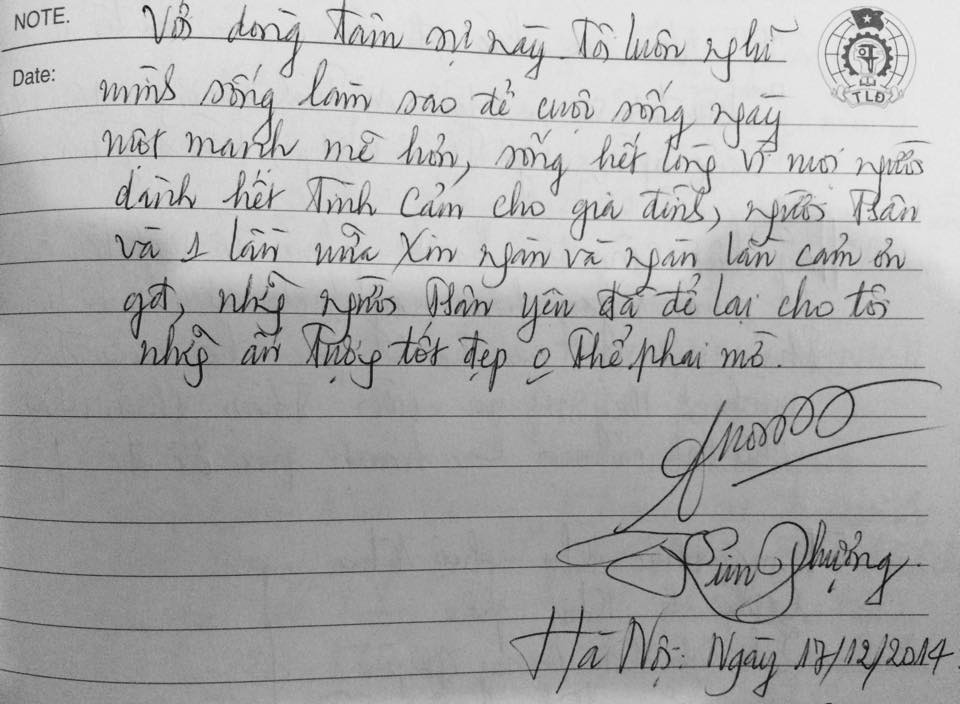 NOTE.
Với dòng tâm sự này. Tôi luôn nghĩ
Date:
mình sống làm sao để cuộc sống ngày
TLĐ
một mạnh mẽ hơn, sống hết lòng vì mọi người
dành hết tình cảm cho gia đình, người thân
và 1 lần nữa xin ngàn và ngàn lần cảm ơn
những người thân yêu đã để lại cho tôi
những ấn tượng tốt đẹp o thể phai mờ.
Kim Phượng
Hà Nội: Ngày 17/12/2014